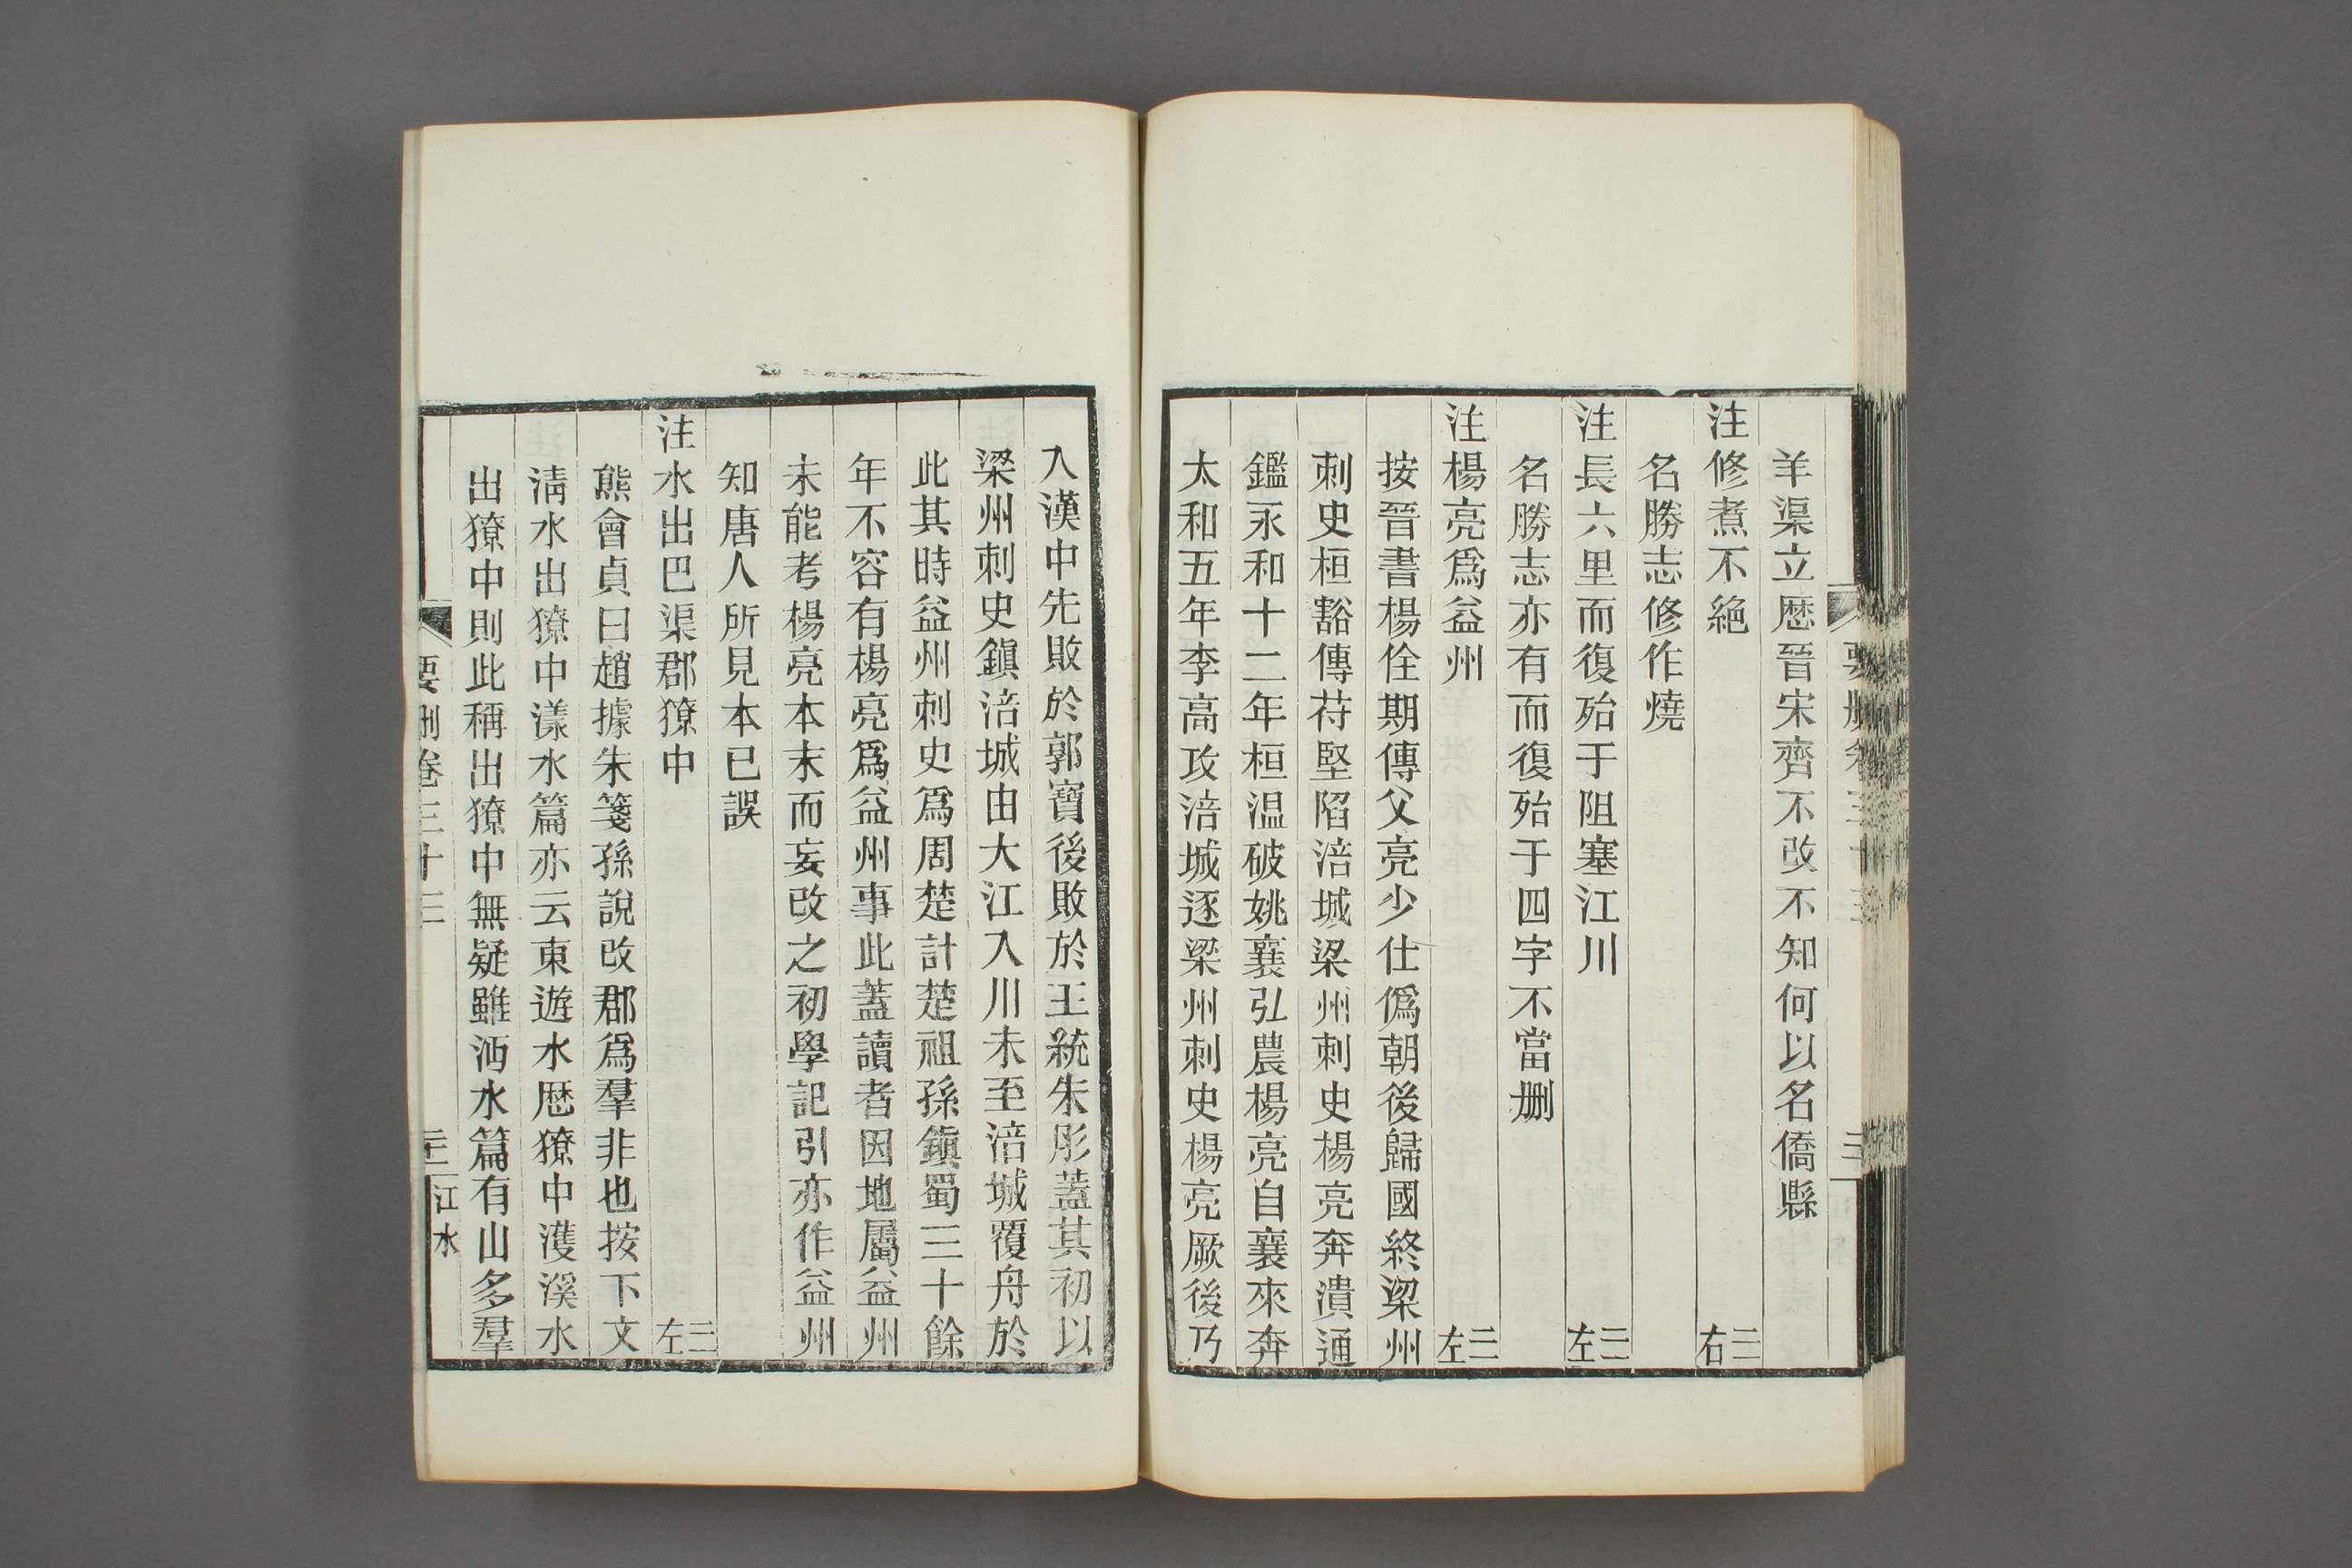 羊渠立歷晉宋齊不改不知何以名僑縣
注修煮不絕 三右
名勝志修作燒
注長六里而復殆于阻塞江川 三左
名勝志亦有而復殆于四字不當刪
注楊亮爲益州 三左
按晉書楊佺期傳父亮少仕僞朝後歸國終梁州
刺史桓豁傳苻堅陷涪城梁州刺史楊亮奔潰通
鑑永和十二年桓温破姚襄弘農楊亮自襄來奔
太和五年李高攻涪城逐梁州刺史楊亮厥後乃
入漢中先敗於郭寶後敗於王統朱彤蓋其初以
梁州刺史鎭涪城由大江入川未至涪城覆舟於
此其時益州刺史爲周楚計楚祖孫鎭蜀三十餘
年不容有楊亮爲益州事此蓋讀者因地屬益州
未能考楊亮本末而妄改之初學記引亦作益州
知唐人所見本已誤
注水出巴渠郡獠中 三左
熊會貞曰趙據朱箋孫說改郡爲羣非也按下文
淸水出獠中漾水篇亦云東遊水歷獠中濩溪水
出獠中則此稱出獠中無疑雖沔水篇有山多羣
要刪卷三十三
江水